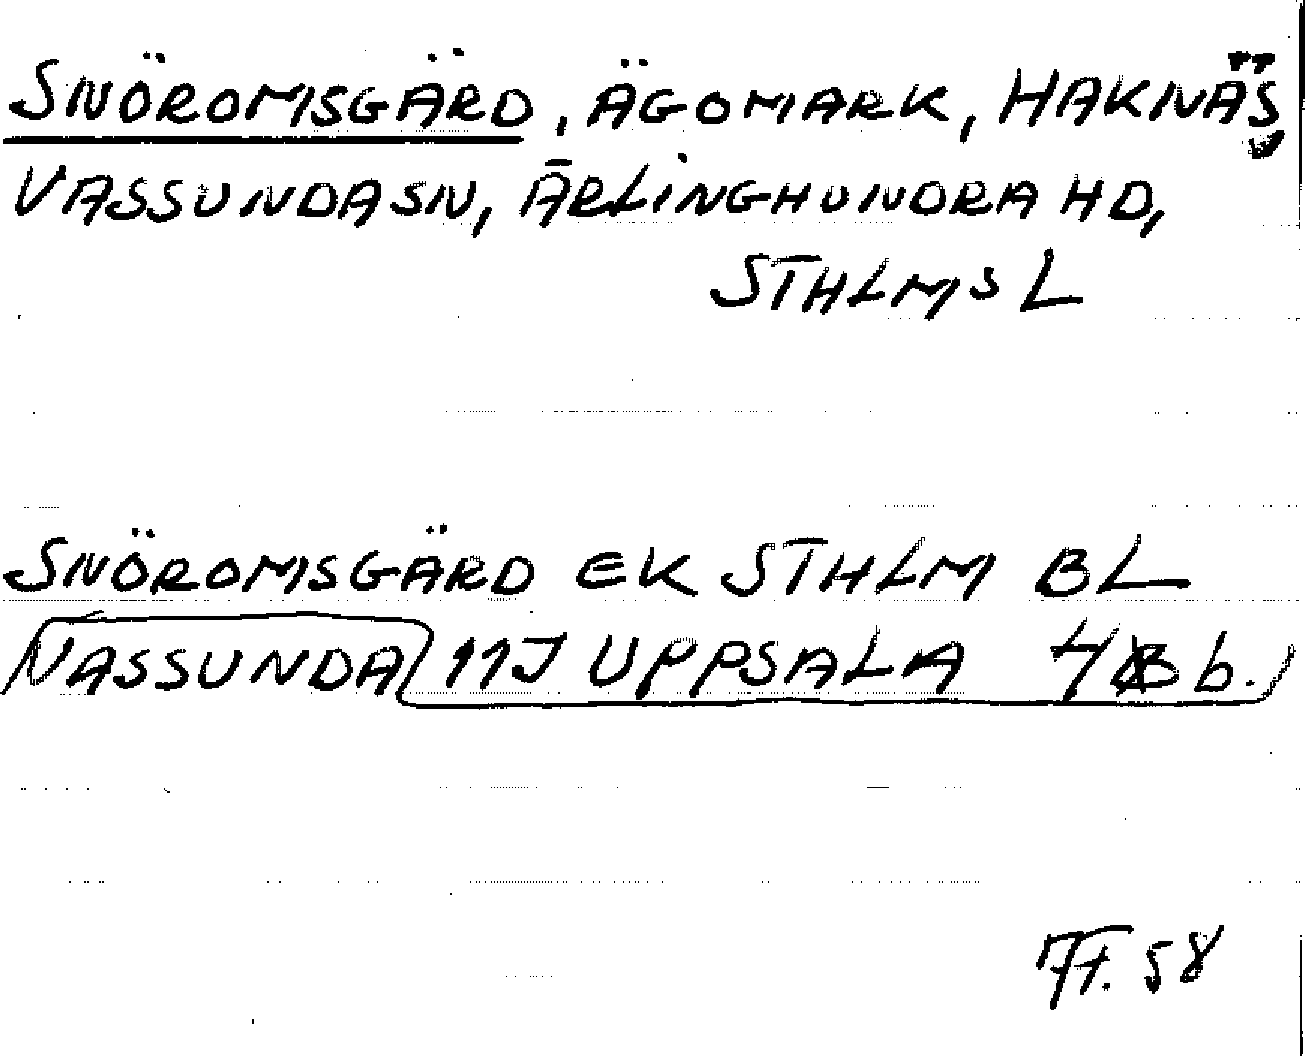 SNÖROMSGÄRD, ÄGOMARK, HAKNÄS,
VASSUNDA SN, ÄRLINGHUNDRA HD,
STHLMS L
SNÖROMSGÄRD EK STHLM BL
VASSUNDA 11J UPPSALA 4 b.
58